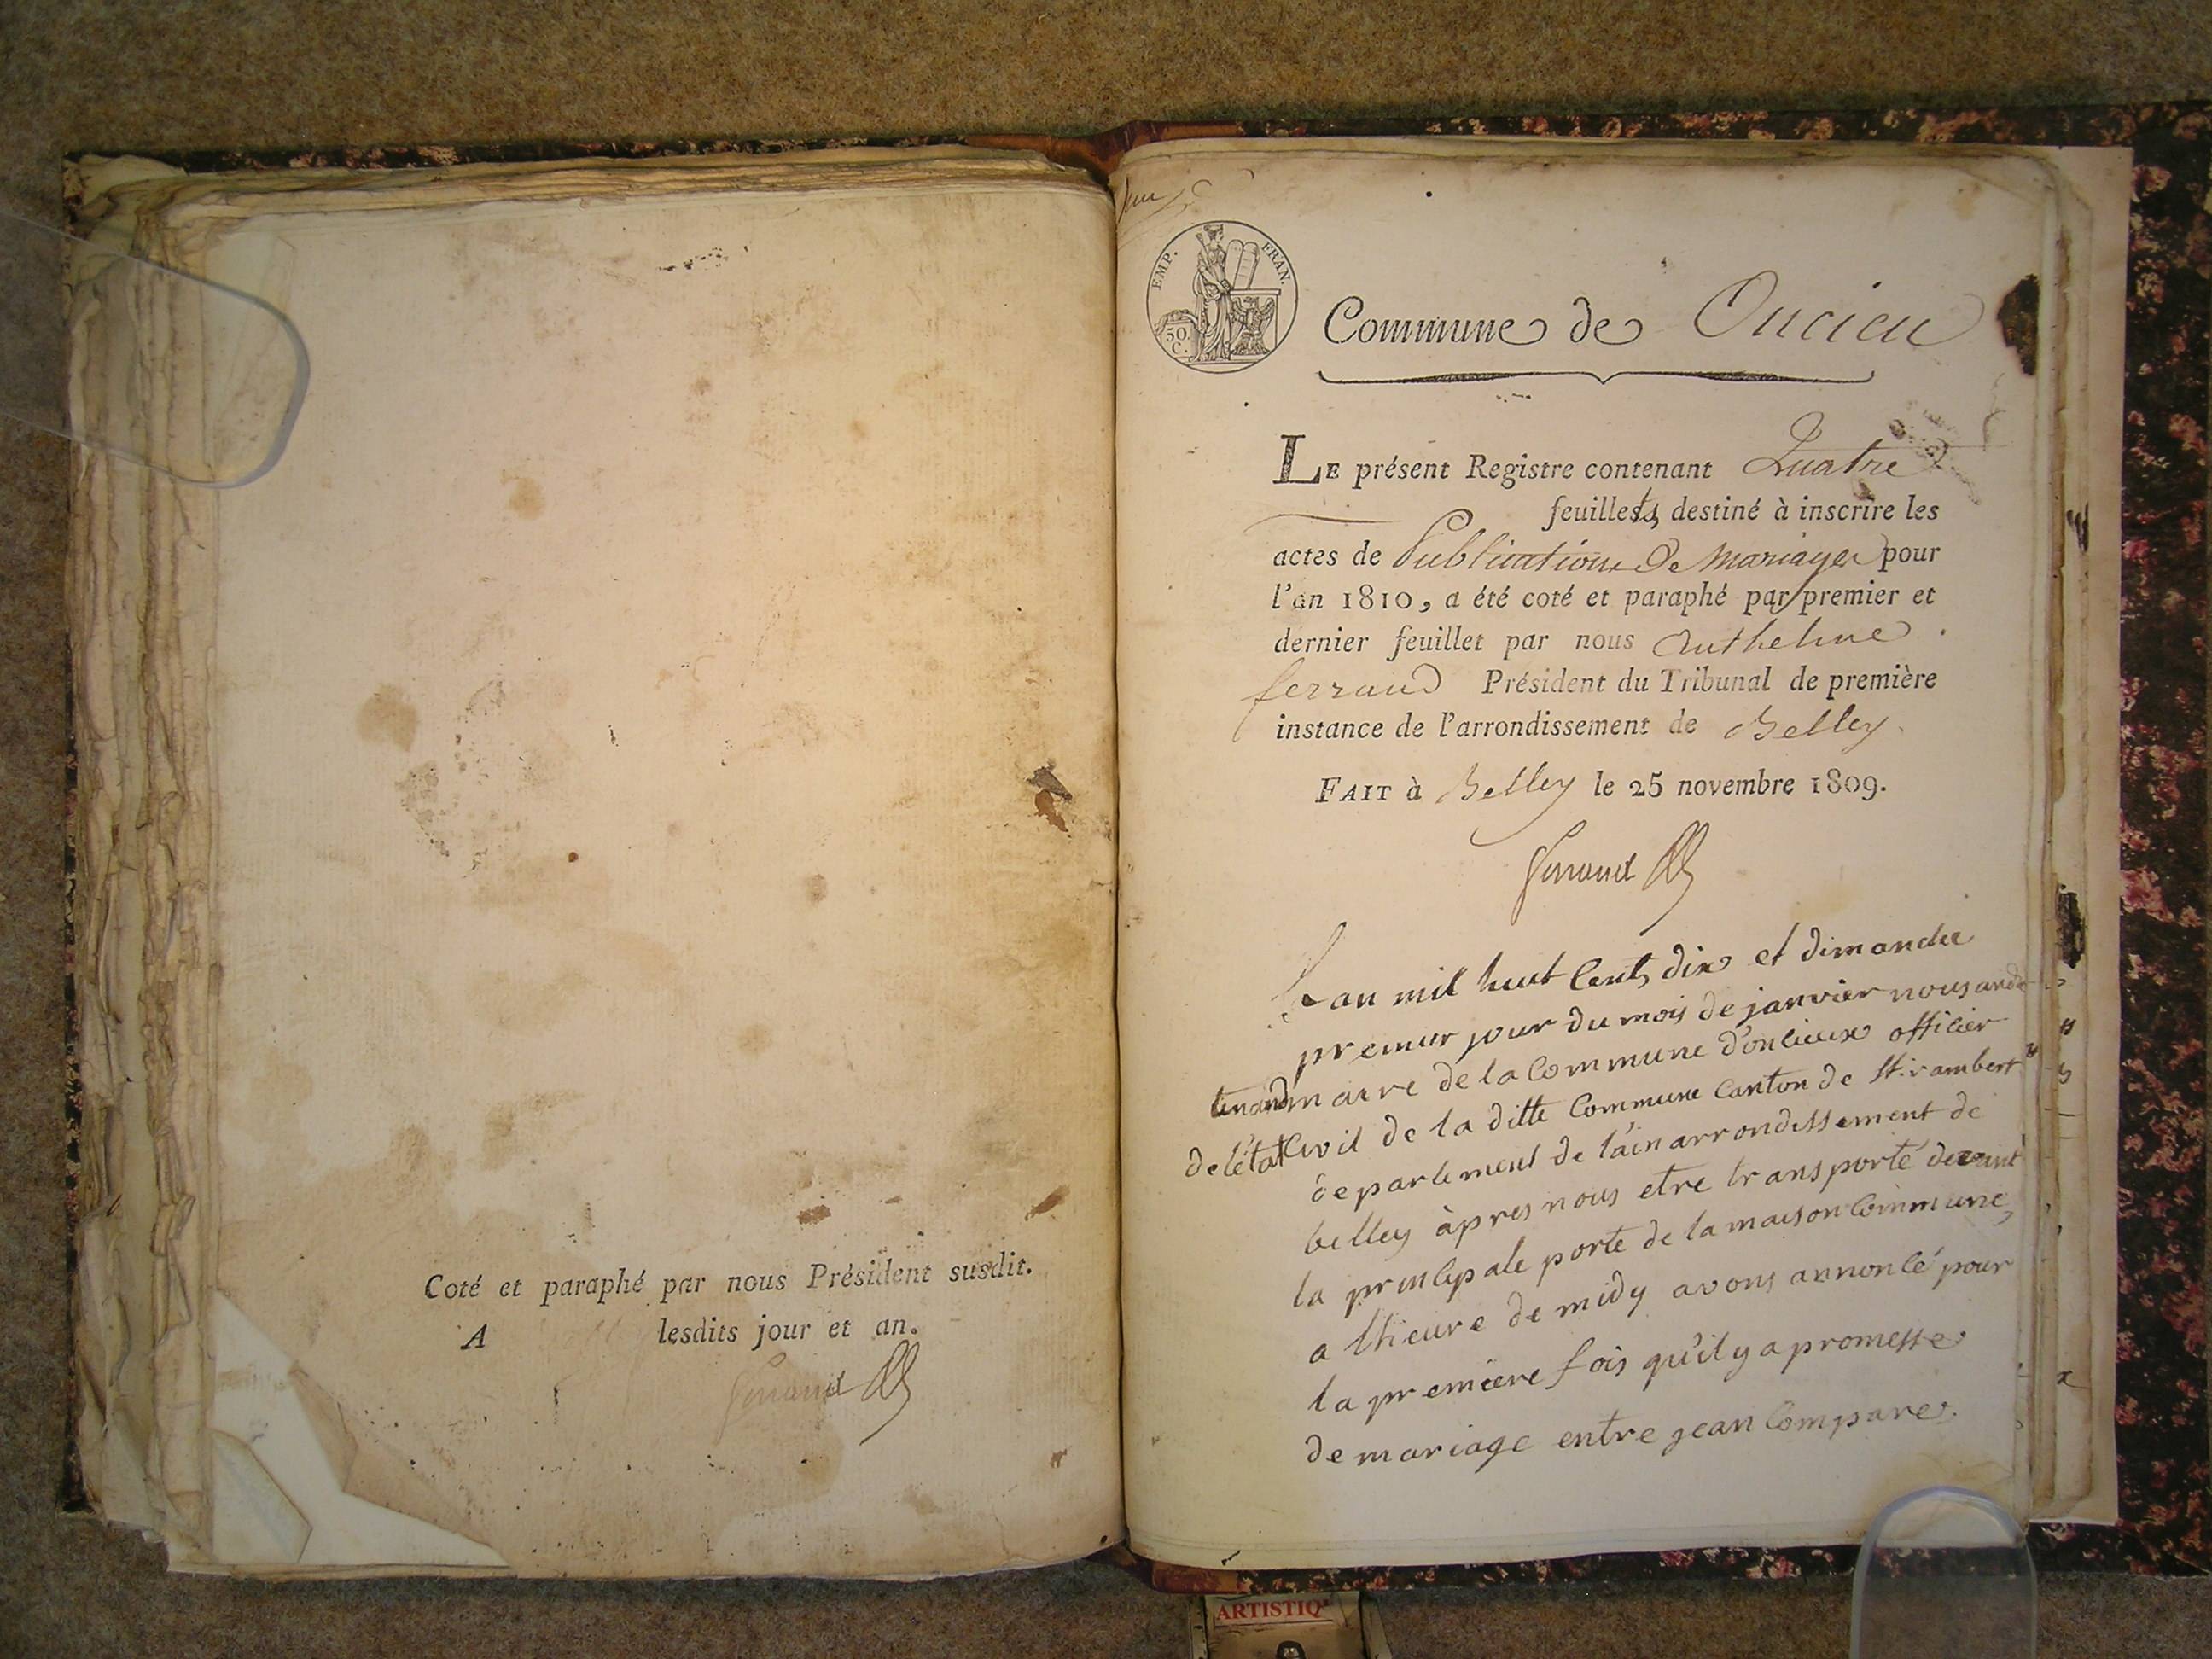 Coté et paraphé par nous Président susdit.
A lesdits jour et an.
ferrand
EMP. FRAN.
50. C.
Commune de Oncieu
LE présent Registre contenant Quatre
feuillets, destiné à inscrire les
actes de Publications De Mariages pour
l'an 1810, a été coté et paraphé par premier et
dernier feuillet par nous Anthelme
ferrand Président du Tribunal de première
instance de l'arrondissement de Belley.
FAIT à Belley le 25 novembre 1809.
ferrand
Lan mil huit Cents dix et dimanche
premier jour du mois de janvier nous
maire de la Commune d'oncieux officier
de létat Civil de la ditte Commune Canton de St. rambert
departement de l'ain arrondissement de
belley àpres nous etre transporté devant
la principale porte de la maison Commune,
a lheure de midy avons annoncé pour
la premiere fois qu'il y a promesse
de mariage entre jean Compare
ARTISTIQ'